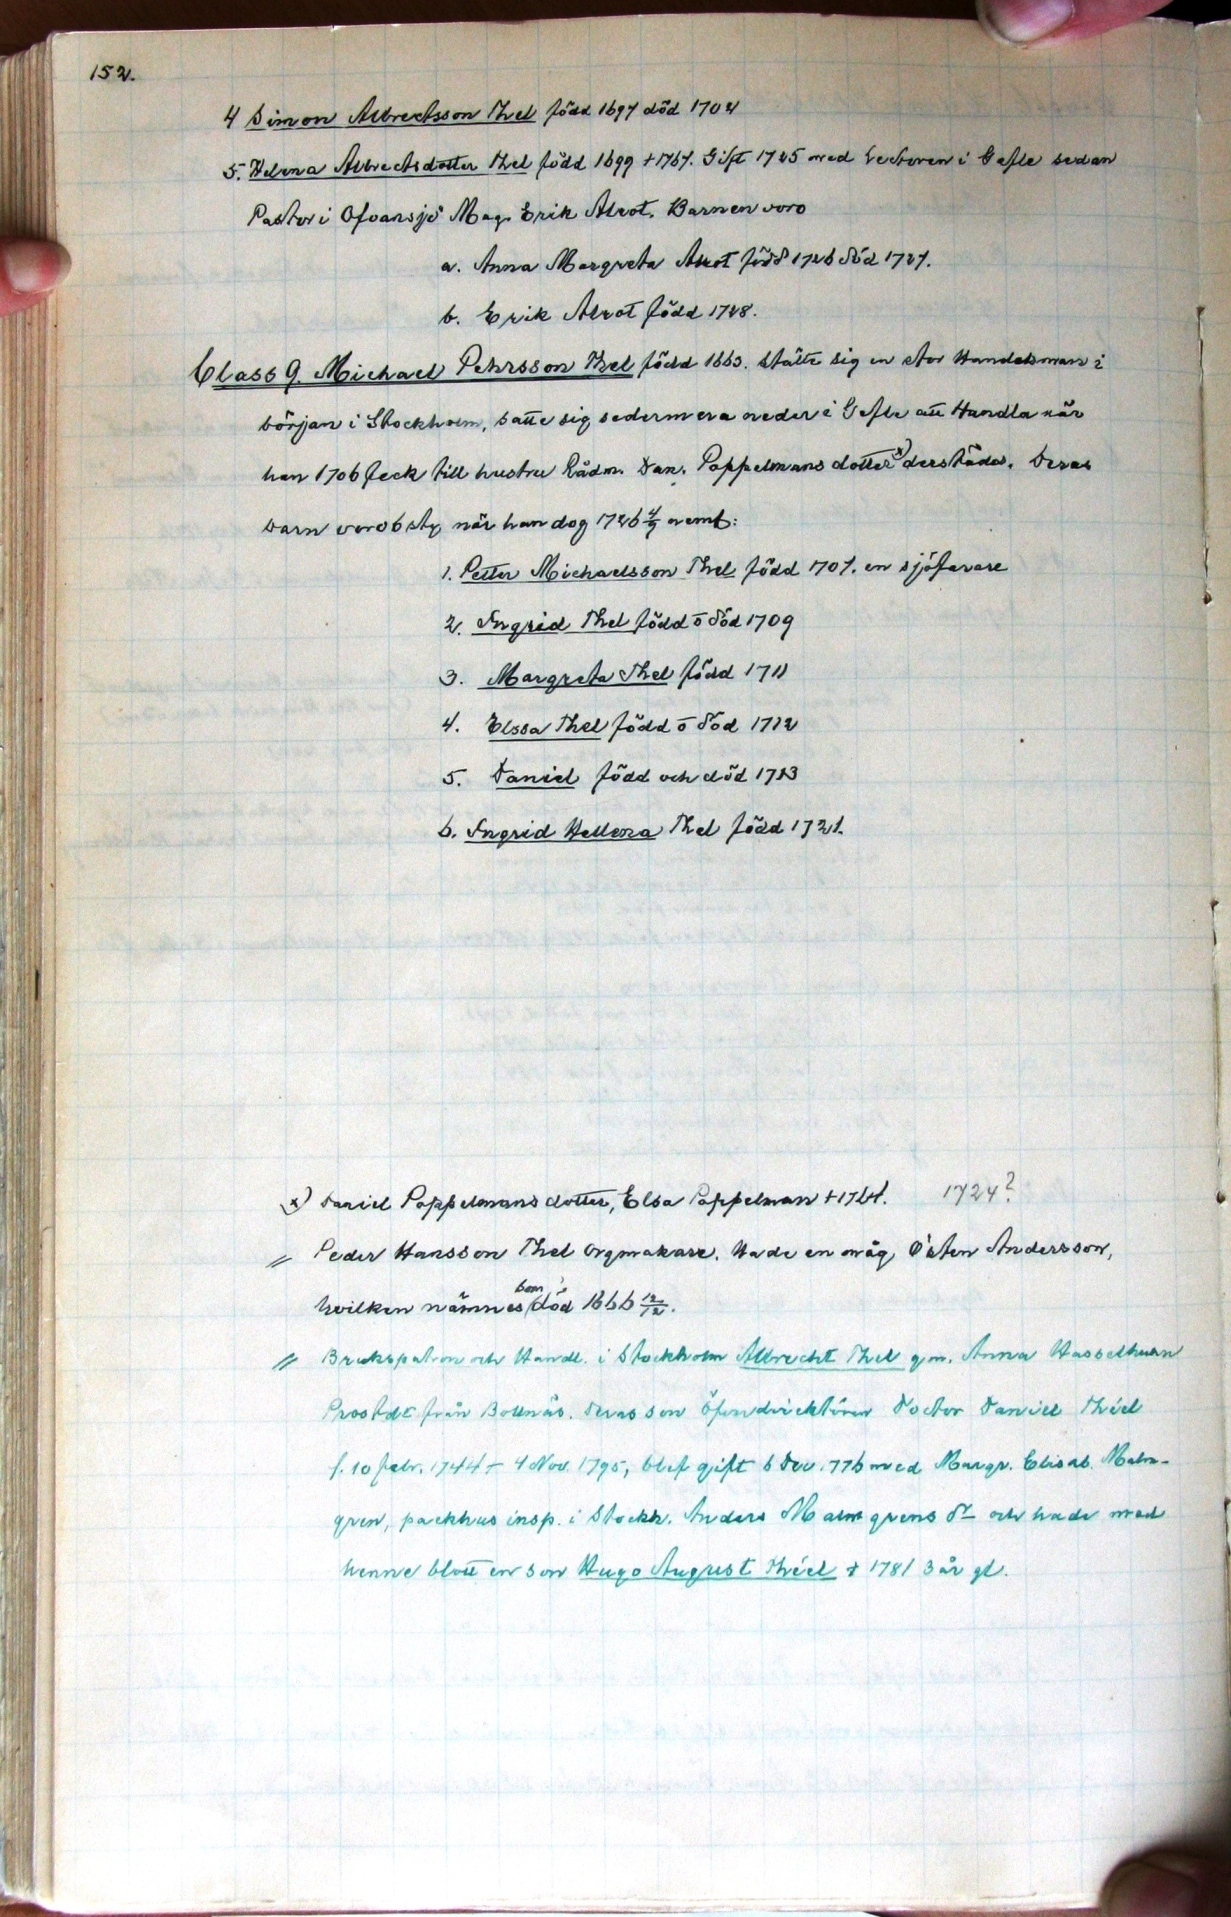 152.
4 Simon Albrectsson Thel född 1697 död 1702
5. Helena Albrectsdotter Thel född 1699 +1767. Gift 1725 med Lectoren i Gefle sedan
Pastor i Ofvansjö Mag. Erik Alrot. Barnen voro
a. Anna Margreta Alrot född 1726 död 1727.
b. Erik Alrot född 1728.
Class 9. Michael Pehrsson Thel född 1663. stälte sig en stor Handelsman i
början i Stockholm, satte sig sedermera neder i Gefle att Handla när
han 1706 feck till hustru Rådm. Dan. Poppelmans dotter x) derstädes. Deras
barn voro 6 st. när han dog 1726 4/9 nemt:
1. Petter Michaelsson Thel född 1707. en sjöfarare
2. Ingrid Thel född o död 1709
3. Margreta Thel född 1711
4. Elssa Thel född o död 1712
5. Daniel född och död 1713
6. Ingrid Hellena Thel född 1721.
x) Daniel Poppelmans dotter, Elsa Poppelman + 1724. 1724?
// Peder Hansson Thel orgmakare. Hade en måg, Östen Andersson,
hvilken nämnes som död 1666 12/12.
// Brukspatron och Handl. i Stockholm Albrecht Thel gm. Anna Hasselhuhn
Prostdr från Bollnäs. Deras son Öfverdirektören Doctor Daniel Théel
f. 10 febr. 1744 + 4 Nov. 1795, blef gift 6 Dec. 1776 med Margr. Elisab. Malm-
gren, packhus insp. i Stockh. Anders Malmgrens dr och hade med
henne blott en son Hugo August Théel + 1781 3 år gl.